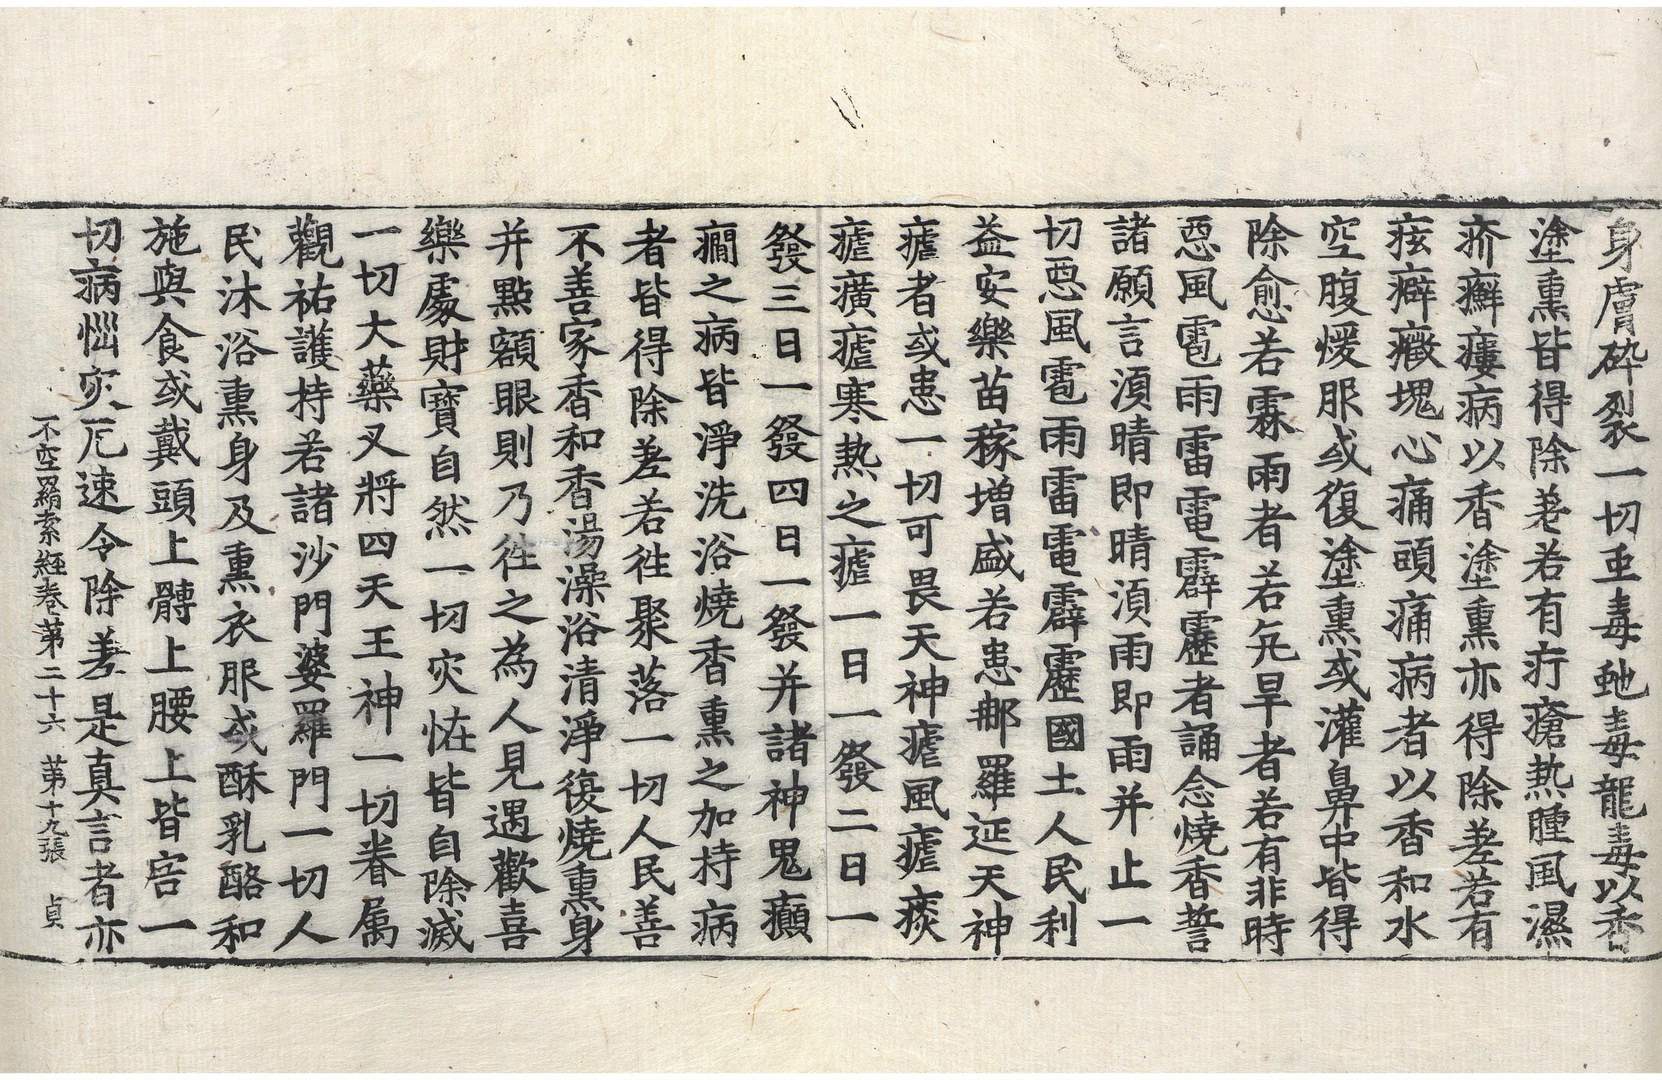 身膚碎裂一切䖝毒虵毒龍毒以香
塗熏皆得除差若有疔瘡熱腫風濕
疥癬瘻病以香塗熏亦得除差若有
痃癖癥塊心痛頭痛病者以香和水
空腹煖服或復塗熏或灌鼻中皆得
除愈若霖雨者若亢旱者若有非時
惡風雹雨雷電霹靂者誦念燒香誓
諸願言湏晴即晴湏雨即雨并止一
切惡風雹雨雷電霹靂國土人民利
益安樂苗稼增盛若患那羅延天神
瘧者或患一切可畏天神瘧風瘧痰
瘧癀瘧寒熱之瘧一日一發二日一
發三日一發四日一發并諸神鬼癲
癎之病皆淨洗浴燒香熏之加持病
者皆得除差若徃聚落一切人民善
不善家香和香湯澡浴清淨復燒熏身
并點額眼則乃徃之為人見遇歡喜
樂處財寶自然一切灾恠皆自除滅
一切大藥叉將四天王神一切眷属
觀祐護持若諸沙門婆羅門一切人
民沐浴熏身及熏衣服或酥乳酪和
施與食或戴頭上髆上腰上皆宻一
切病惱灾厄速令除差是真言者亦
不空羂索經卷第二十六 第十九張 貞